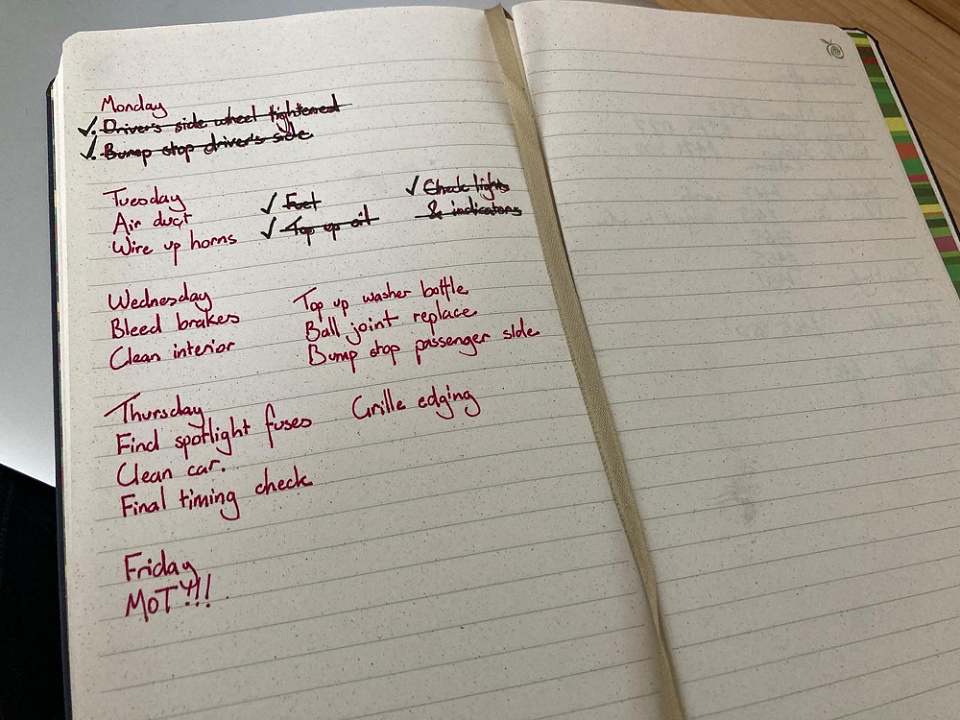 Monday
Driver's side wheel tightened
Bump stop driver's side
Tuesday
Air duct
Wire up horns
Fuel
Top up oil
Check lights
& indicators
Wednesday
Bleed brakes
Clean interior
Top up washer bottle
Ball joint replace
Bump stop passenger side
Thursday
Find spotlight fuses
Clean car.
Final timing check
Grille edging
Friday
MOT!!!